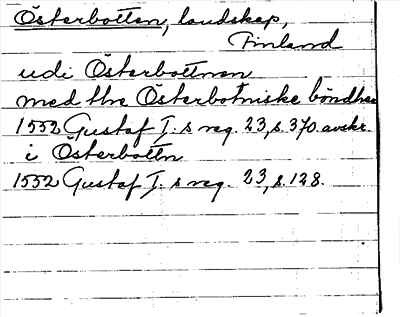 Österbotten, landskap,
Finland
udi Österbottnen
med the Österbotniske böndher
1552 Gustaf I.s reg. 23, s. 370. avskr.
i Österbottn
1552 Gustaf I.s reg. 23, s. 128.